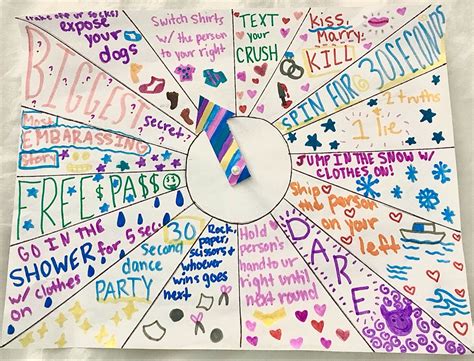 (take off ur socks)
expose
your
dogs
Switch Shirts
w/ the person
to your right
TEXT
your
CRUSH
Kiss,
Marry,
KILL
SPIN FOR 30 SECONDS
2 truths
1 lie
JUMP IN THE SNOW W/
CLOTHES ON!
Ship the person
on your
left
DARE
Hold
person's
hand to ur
right until
next round
Rock,
paper,
scissors &
whoever
wins goes
next
30
second
dance
PARTY
GO IN THE
SHOWER for 5 sec
w/ clothes
on
FREE PASS
Most
EMBARASSING
Story
BIGGEST
secret?